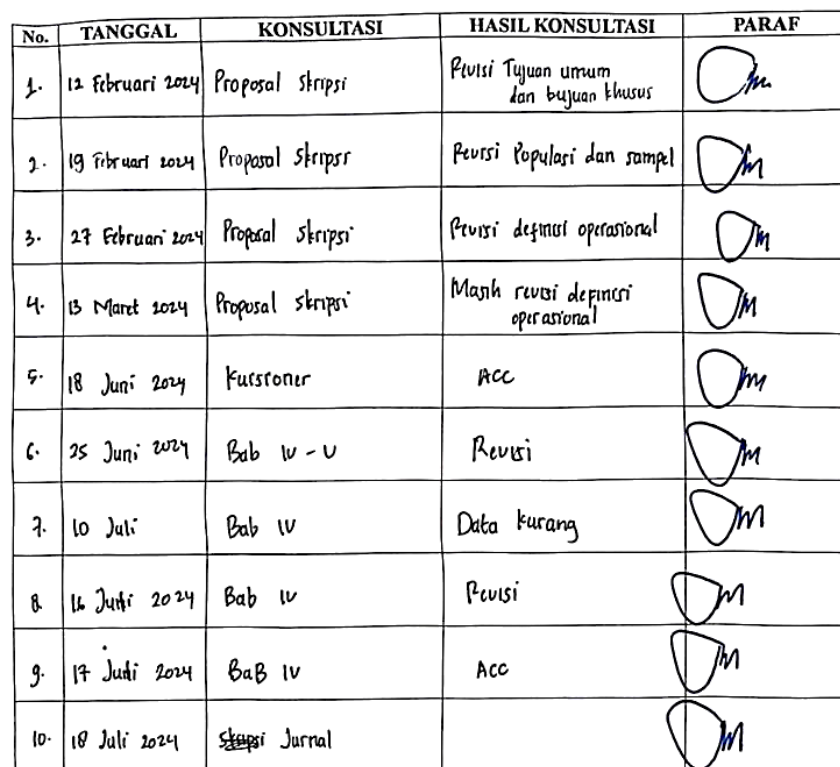 No. TANGGAL KONSULTASI HASIL KONSULTASI PARAF
1. 12 Februari 2024 Proposal Skripsi Revisi Tujuan umum
dan tujuan khusus
2. 19 Februari 2024 Proposal Skripsi Revisi Populasi dan sampel
3. 27 Februari 2024 Proposal Skripsi Revisi definisi operasional
4. 13 Maret 2024 Proposal skripsi Masih revisi definisi
operasional
5. 18 Juni 2024 Kuisioner ACC
6. 25 Juni 2024 Bab IV - V Revisi
7. 10 Juli Bab IV Data kurang
8. 16 Juli 2024 Bab IV Revisi
9. 17 Juli 2024 BaB IV Acc
10. 18 Juli 2024 Jurnal